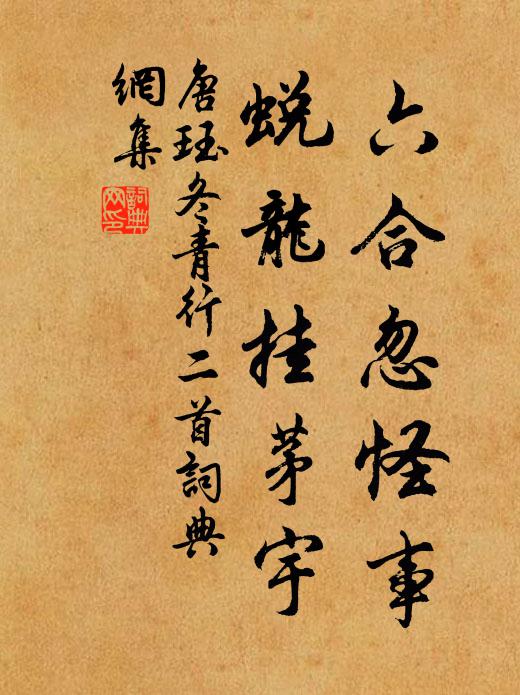 六合忽怪事
蜕龍挂茅宇
唐珏冬青行二首詞典
網集
詞典
网印